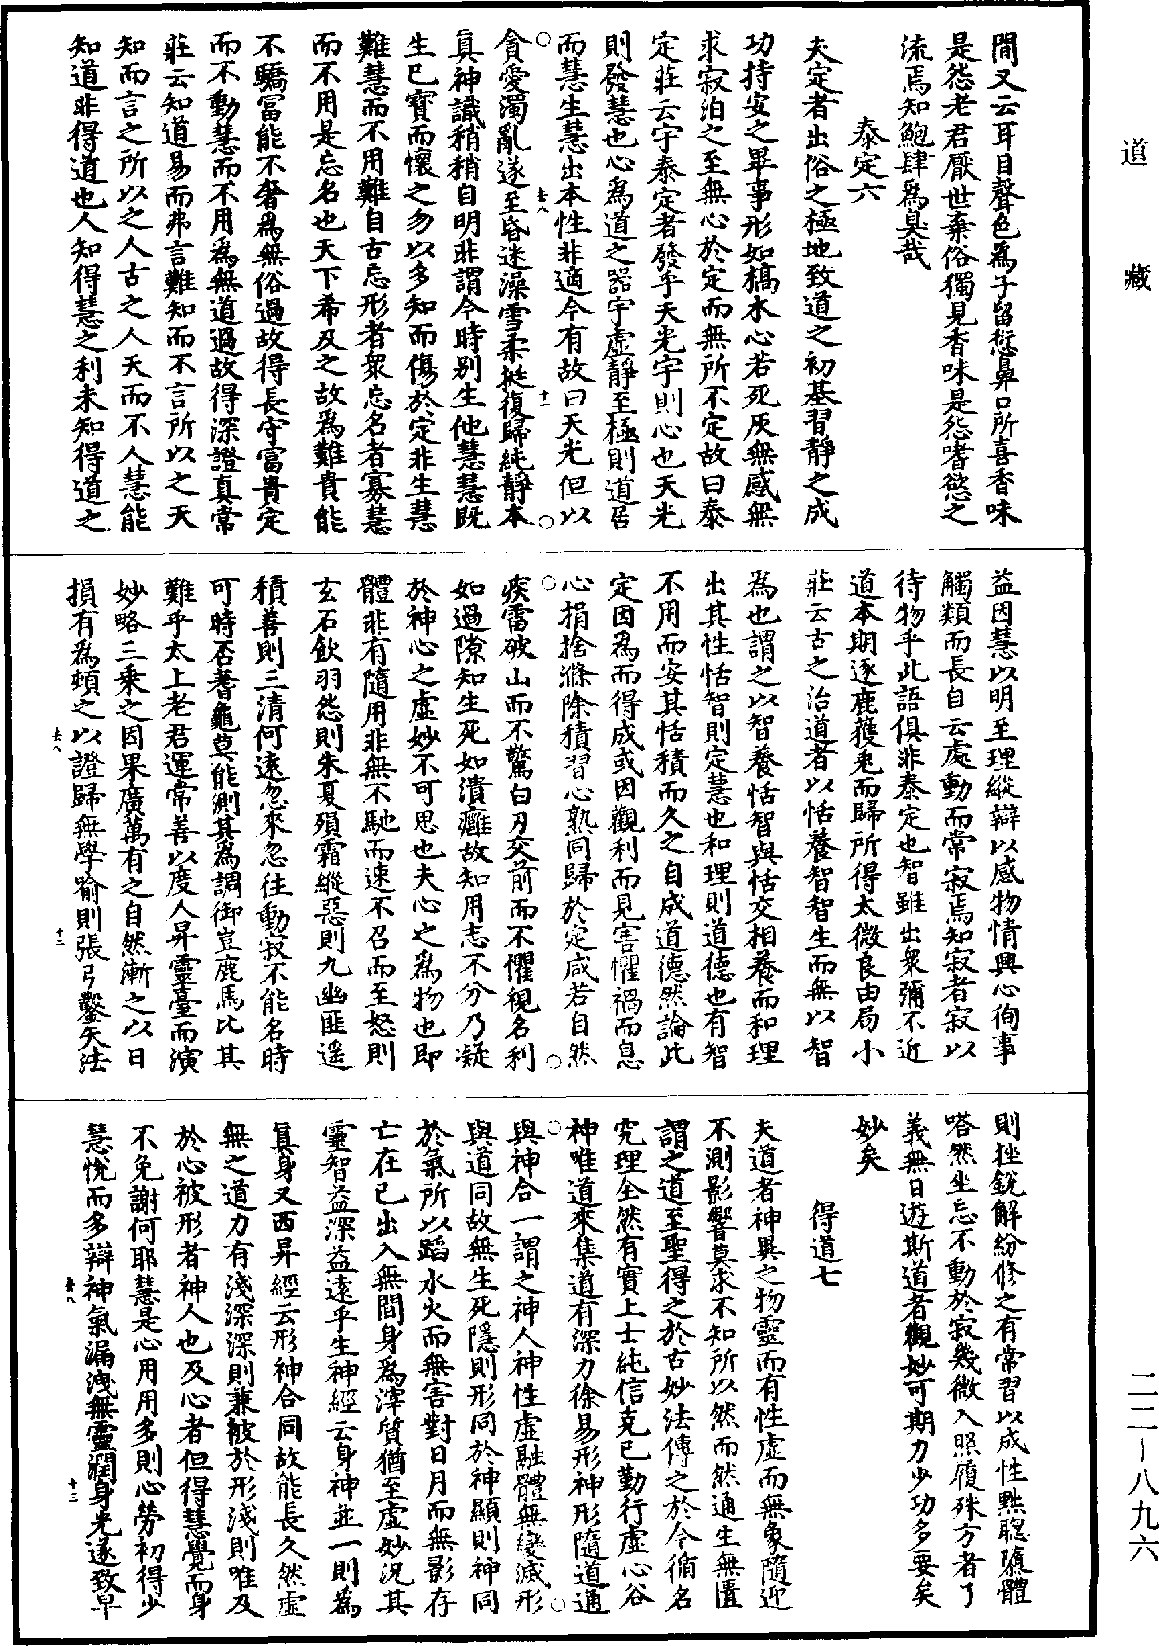 道藏
間又云耳目聲色為子留愆鼻口所喜香味
是怨老君厭世棄俗獨見香味是怨嗜慾之
流焉知鮑肆為臭哉
泰定六
夫定者出俗之極地致道之初基習靜之成
功持安之畢事形如槁木心若死灰無感無
求寂泊之至無心於定而無所不定故曰泰
定莊云宇泰定者發乎天光宇則心也天光
則發慧也心為道之器宇虛靜至極則道居
而慧生慧出本性非適今有故曰天光但以
貪愛濁亂遂至昏迷澡雪柔挺復歸純靜本
真神識稍稍自明非謂今時別生他慧慧既
生已寶而懷之勿以多知而傷於定非生慧
難慧而不用難自古忘形者衆忘名者寡慧
而不用是忘名也天下希及之故為難貴能
不驕富能不奢為無俗過故得長守富貴定
而不動慧而不用為無道過故得深證真常
莊云知道易而弗言難知而不言所以之天
知而言之所以之人古之人天而不人慧能
知道非得道也人知得慧之利未知得道之
益因慧以明至理縱辯以感物情興心徇事
觸類而長自云處動而常寂焉知寂者寂以
待物乎此語俱非泰定也智雖出衆彌不近
道本期逐鹿獲兔而歸所得太微良由局小
莊云古之治道者以恬養智智生而無以智
為也謂之以智養恬智與恬交相養而和理
出其性恬智則定慧也和理則道德也有智
不用而安其恬積而久之自成道德然論此
定因為而得成或因觀利而見害懼禍而息
心捐捨滌除積習心熟同歸於定咸若自然
疾雷破山而不驚白刃交前而不懼視名利
如過隙知生死如潰癰故知用志不分乃凝
於神心之虛妙不可思也夫心之為物也即
體非有隨用非無不馳而速不召而至怒則
玄石飲羽怨則朱夏殞霜縱惡則九幽匪遥
積善則三清何遠忽來忽往動寂不能名時
可時否蓍龜莫能測其為調御豈鹿馬比其
難乎太上老君運常善以度人昇靈臺而演
妙略三乘之因果廣萬有之自然漸之以日
損有為頓之以證歸無學喻則張弓鑿矢法
則挫銳解紛修之有常習以成性黜聰隳體
嗒然坐忘不動於寂幾微入照履殊方者了
義無日遊斯道者觀妙可期力少功多要矣
妙矣
得道七
夫道者神異之物靈而有性虛而無象隨迎
不測影響莫求不知所以然而然通生無匱
謂之道至聖得之於古妙法傳之於今循名
究理全然有實上士純信克已勤行虛心谷
神唯道來集道有深力徐易形神形隨道通
與神合一謂之神人神性虛融體無變滅形
與道同故無生死隱則形同於神顯則神同
於氣所以蹈水火而無害對日月而無影存
亡在已出入無間身為滓質猶至虛妙況其
靈智益深益遠乎生神經云身神並一則為
真身又西昇經云形神合同故能長久然虛
無之道力有淺深深則兼被於形淺則唯及
於心被形者神人也及心者但得慧覺而身
不免謝何耶慧是心用用多則心勞初得少
慧悅而多辯神氣漏洩無靈潤身光遂致早
二二—八九六